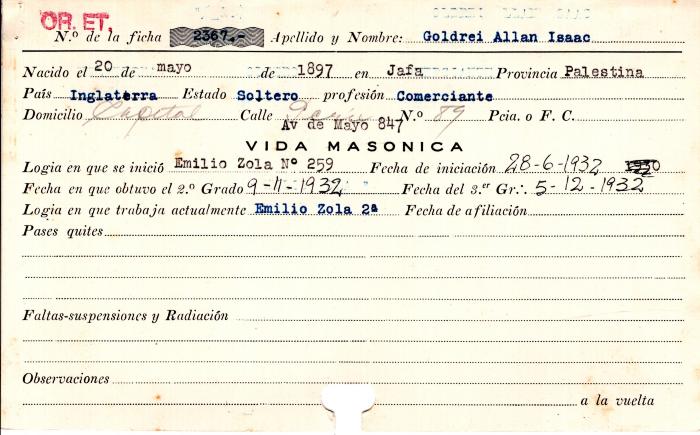 OR. ET.
N.º de la ficha 2367.- Apellido y Nombre: Goldrei Allan Isaac
Nacido el 20 de mayo de 1897 en Jafa Provincia Palestina
País Inglaterra Estado Soltero profesión Comerciante
Domicilio Capital Calle N.º 89 Pcia. o F. C.
Av de Mayo 847
VIDA MASONICA
Logia en que se inició Emilio Zola Nº 259 Fecha de iniciación 28-6-1932
Fecha en que obtuvo el 2.º Grado 9-11-1932 Fecha del 3.er Gr∴ 5-12-1932
Logia en que trabaja actualmente Emilio Zola 2ª Fecha de afiliación
Pases quites
Faltas-suspensiones y Radiación
Observaciones
a la vuelta